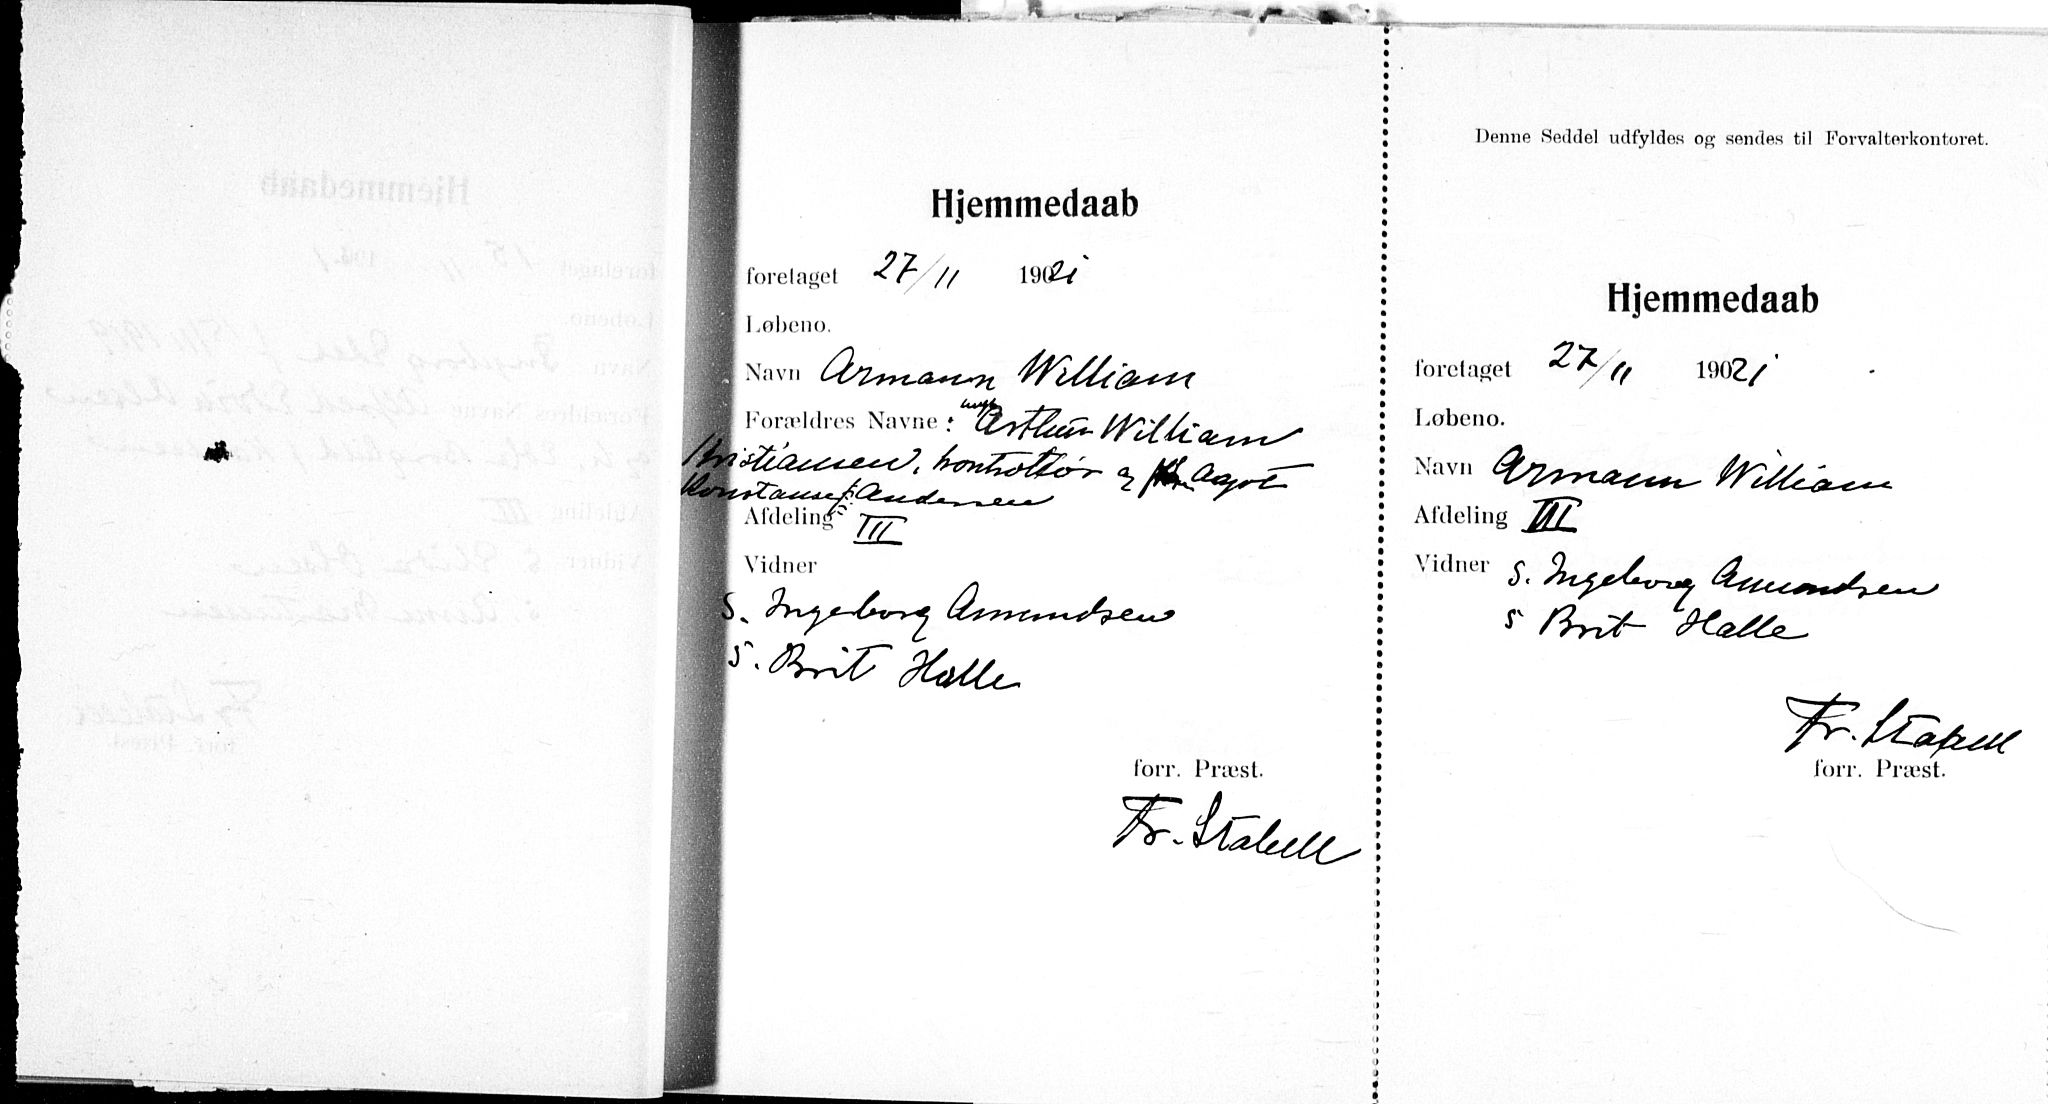 Hjemmedaab
foretaget 27/11 19021
Løbeno.
Navn Armann William
Forældres Navne: Arthur William
Kristiansen, kontrollør og Agot
Konstanse f. Andersen
Afdeling III
Vidner
S. Ingeborg Amundsen
S. Brit Halle
forr. Præst.
Fr. Stabell
Denne Seddel udfyldes og sendes til Forvalterkontoret.
Hjemmedaab
foretaget 27/11 19021
Løbeno.
Navn Armann William
Afdeling III
Vidner S. Ingeborg Amundsen
S Brit Halle
Fr. Stabell
forr. Præst.